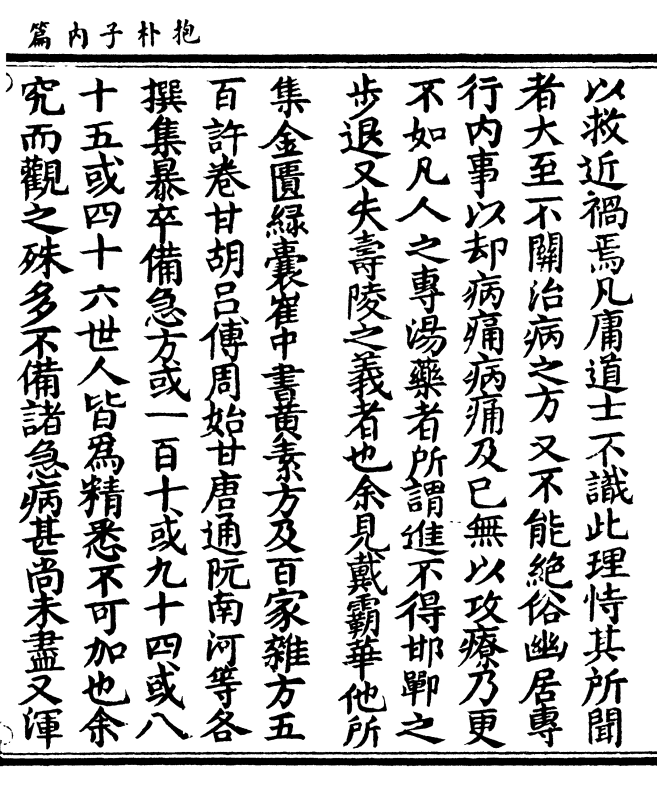 抱朴子內篇
以救近禍焉凡庸道士不識此理恃其所聞
者大至不關治病之方又不能絶俗幽居專
行内事以却病痛病痛及已無以攻療乃更
不如凡人之專湯藥者所謂進不得邯鄲之
步退又失壽陵之義者也余見戴霸華他所
集金匱緑囊崔中書黄素方及百家雜方五
百許卷甘胡吕傅周始甘唐通阮南河等各
撰集暴卒備急方或一百十或九十四或八
十五或四十六世人皆爲精悉不可加也余
究而觀之殊多不備諸急病甚尚未盡又渾